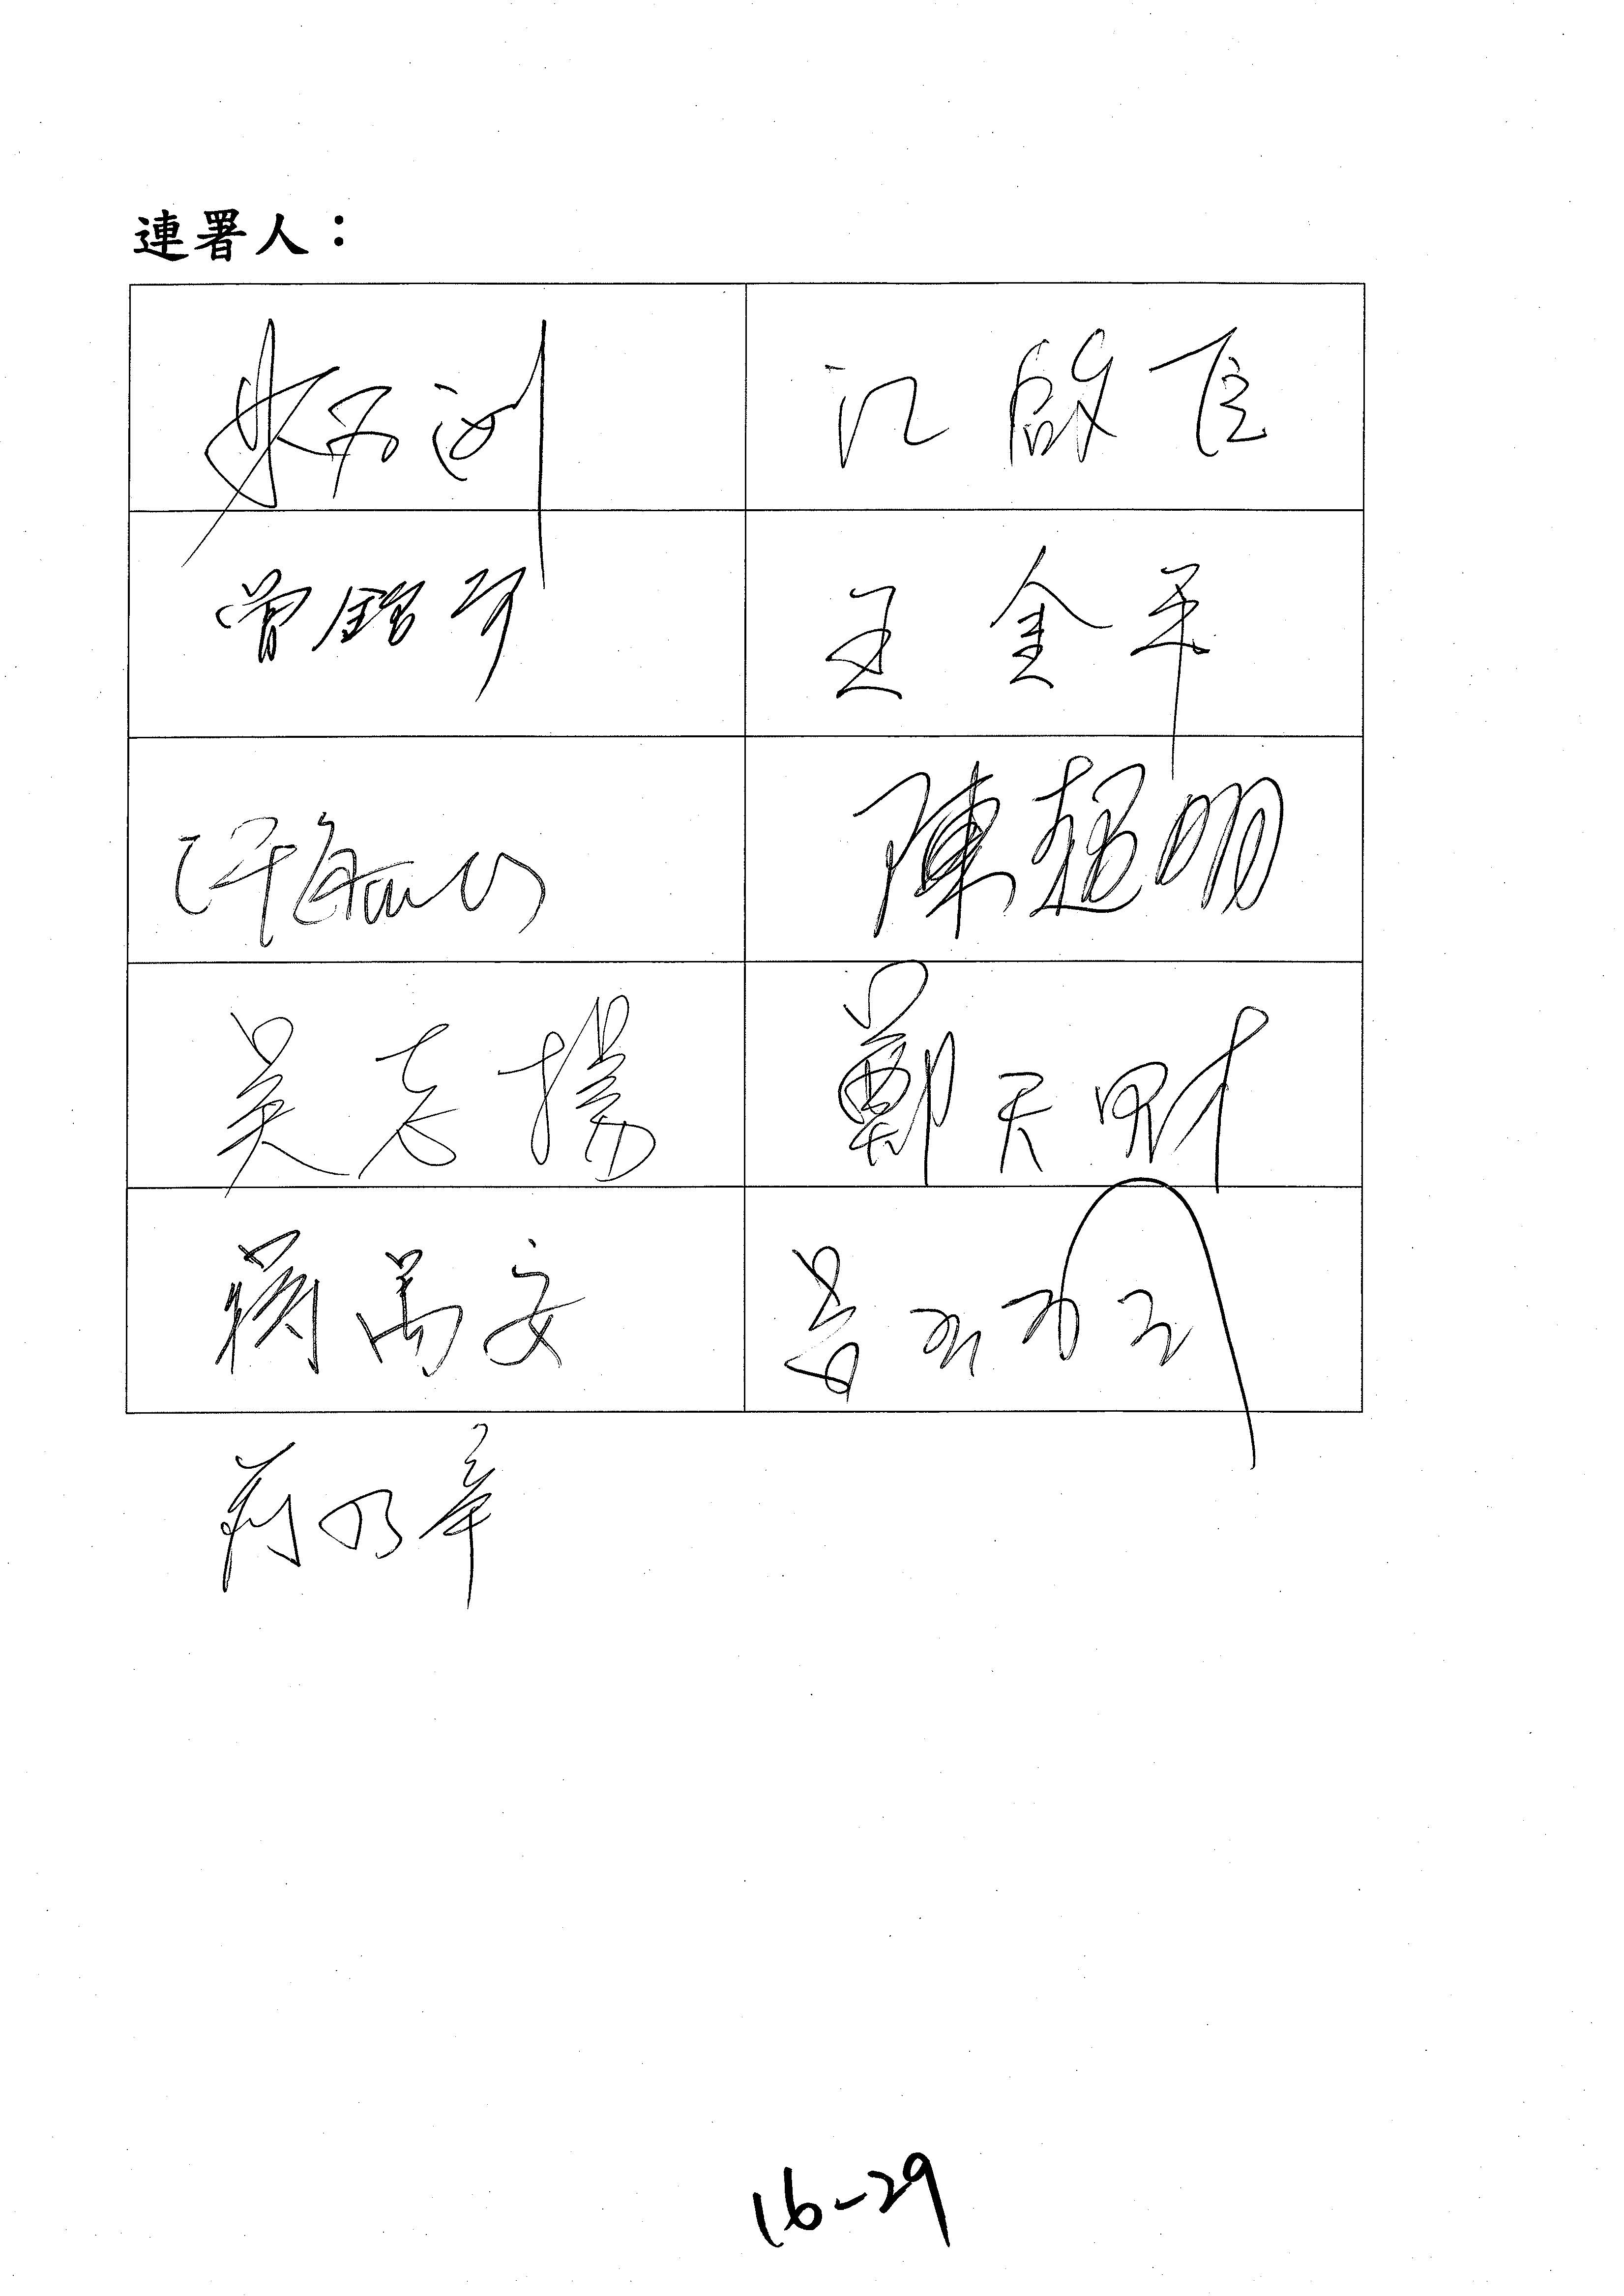 連署人：
江啟臣
曾銘宗 王金平
許毓仁 陳超明
吳志揚 鄭天財
蔣萬安 呂玉玲
蔣乃辛
16-29